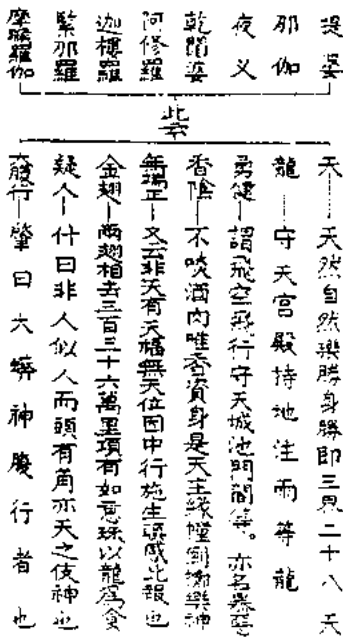 提婆
那伽
夜叉
乾闥婆
阿修羅
迦樓羅
緊那羅
摩睺羅伽
此云
天——天然自然樂勝身勝即三界二十八天
龍——守天宮殿持地注雨等龍
勇健——謂飛空飛行守天城池門閣等。亦名暴惡
香陰——不噉酒肉唯香資身是天主緣幢倒擲樂神
無端正——又云非天有天福無天位因中行施生嗔感此報也
金翅——兩翅相去三百三十六萬里項有如意珠以龍為食
疑人——什曰非人似人而頭有角亦天之伎神也
腹行——肇曰大蟒神腹行者也